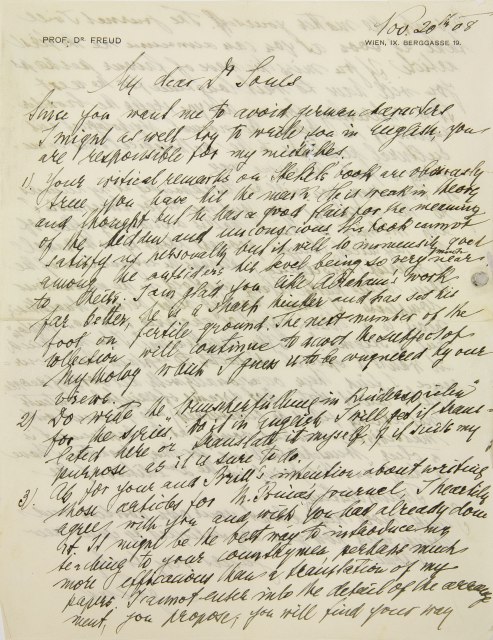 Nov. 20th 08
PROF. DR FREUD
WIEN, IX. BERGGASSE 19.
My dear Dr
Since you want me to avoid german characters
I might as well try to write you in English, you
are responsible for my mistakes.
1) Your critical remarks on Stekel's book are obviously
true, you have hit the mark. He is weak in theory
and thought but he has a good flair for the meaning
of the hidden and unconscious. His book cannot
satisfy us personally but it will do immensely good
among the outsiders, his level being so very near
to theirs. I am glad you like Abraham's work
far better, he is a sharp thinker and has set his
foot on fertile ground. The next number of the
collection will continue to the subject of
Mythology which I guess is to be conquered by our
views.
2) Do write the "Wunscherfüllung in Kinderspielen"
for the series, do it in English. I will have it trans-
lated here or translate it myself, if it suits my
purpose as it is sure to do.
3) As for your and Brill's intention about writing
those articles for M. Princes journal, I heartily
agree with you and wish you had already done
it. It might be the best way to introduce my
teaching to your countrymen, perhaps much
more efficacious than a translation of my
papers. I cannot enter into the detail of the arrange
ment, you propose, you will find your way